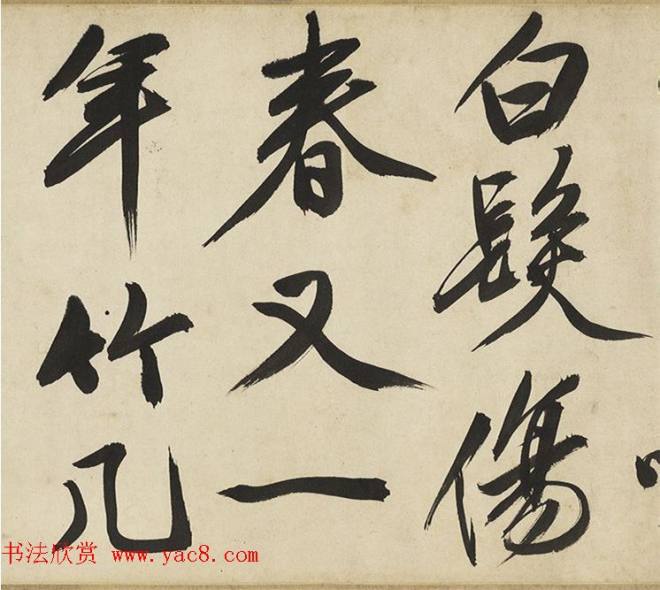 白髮傷
春又一
年竹几
书法欣赏 www.yac8.com